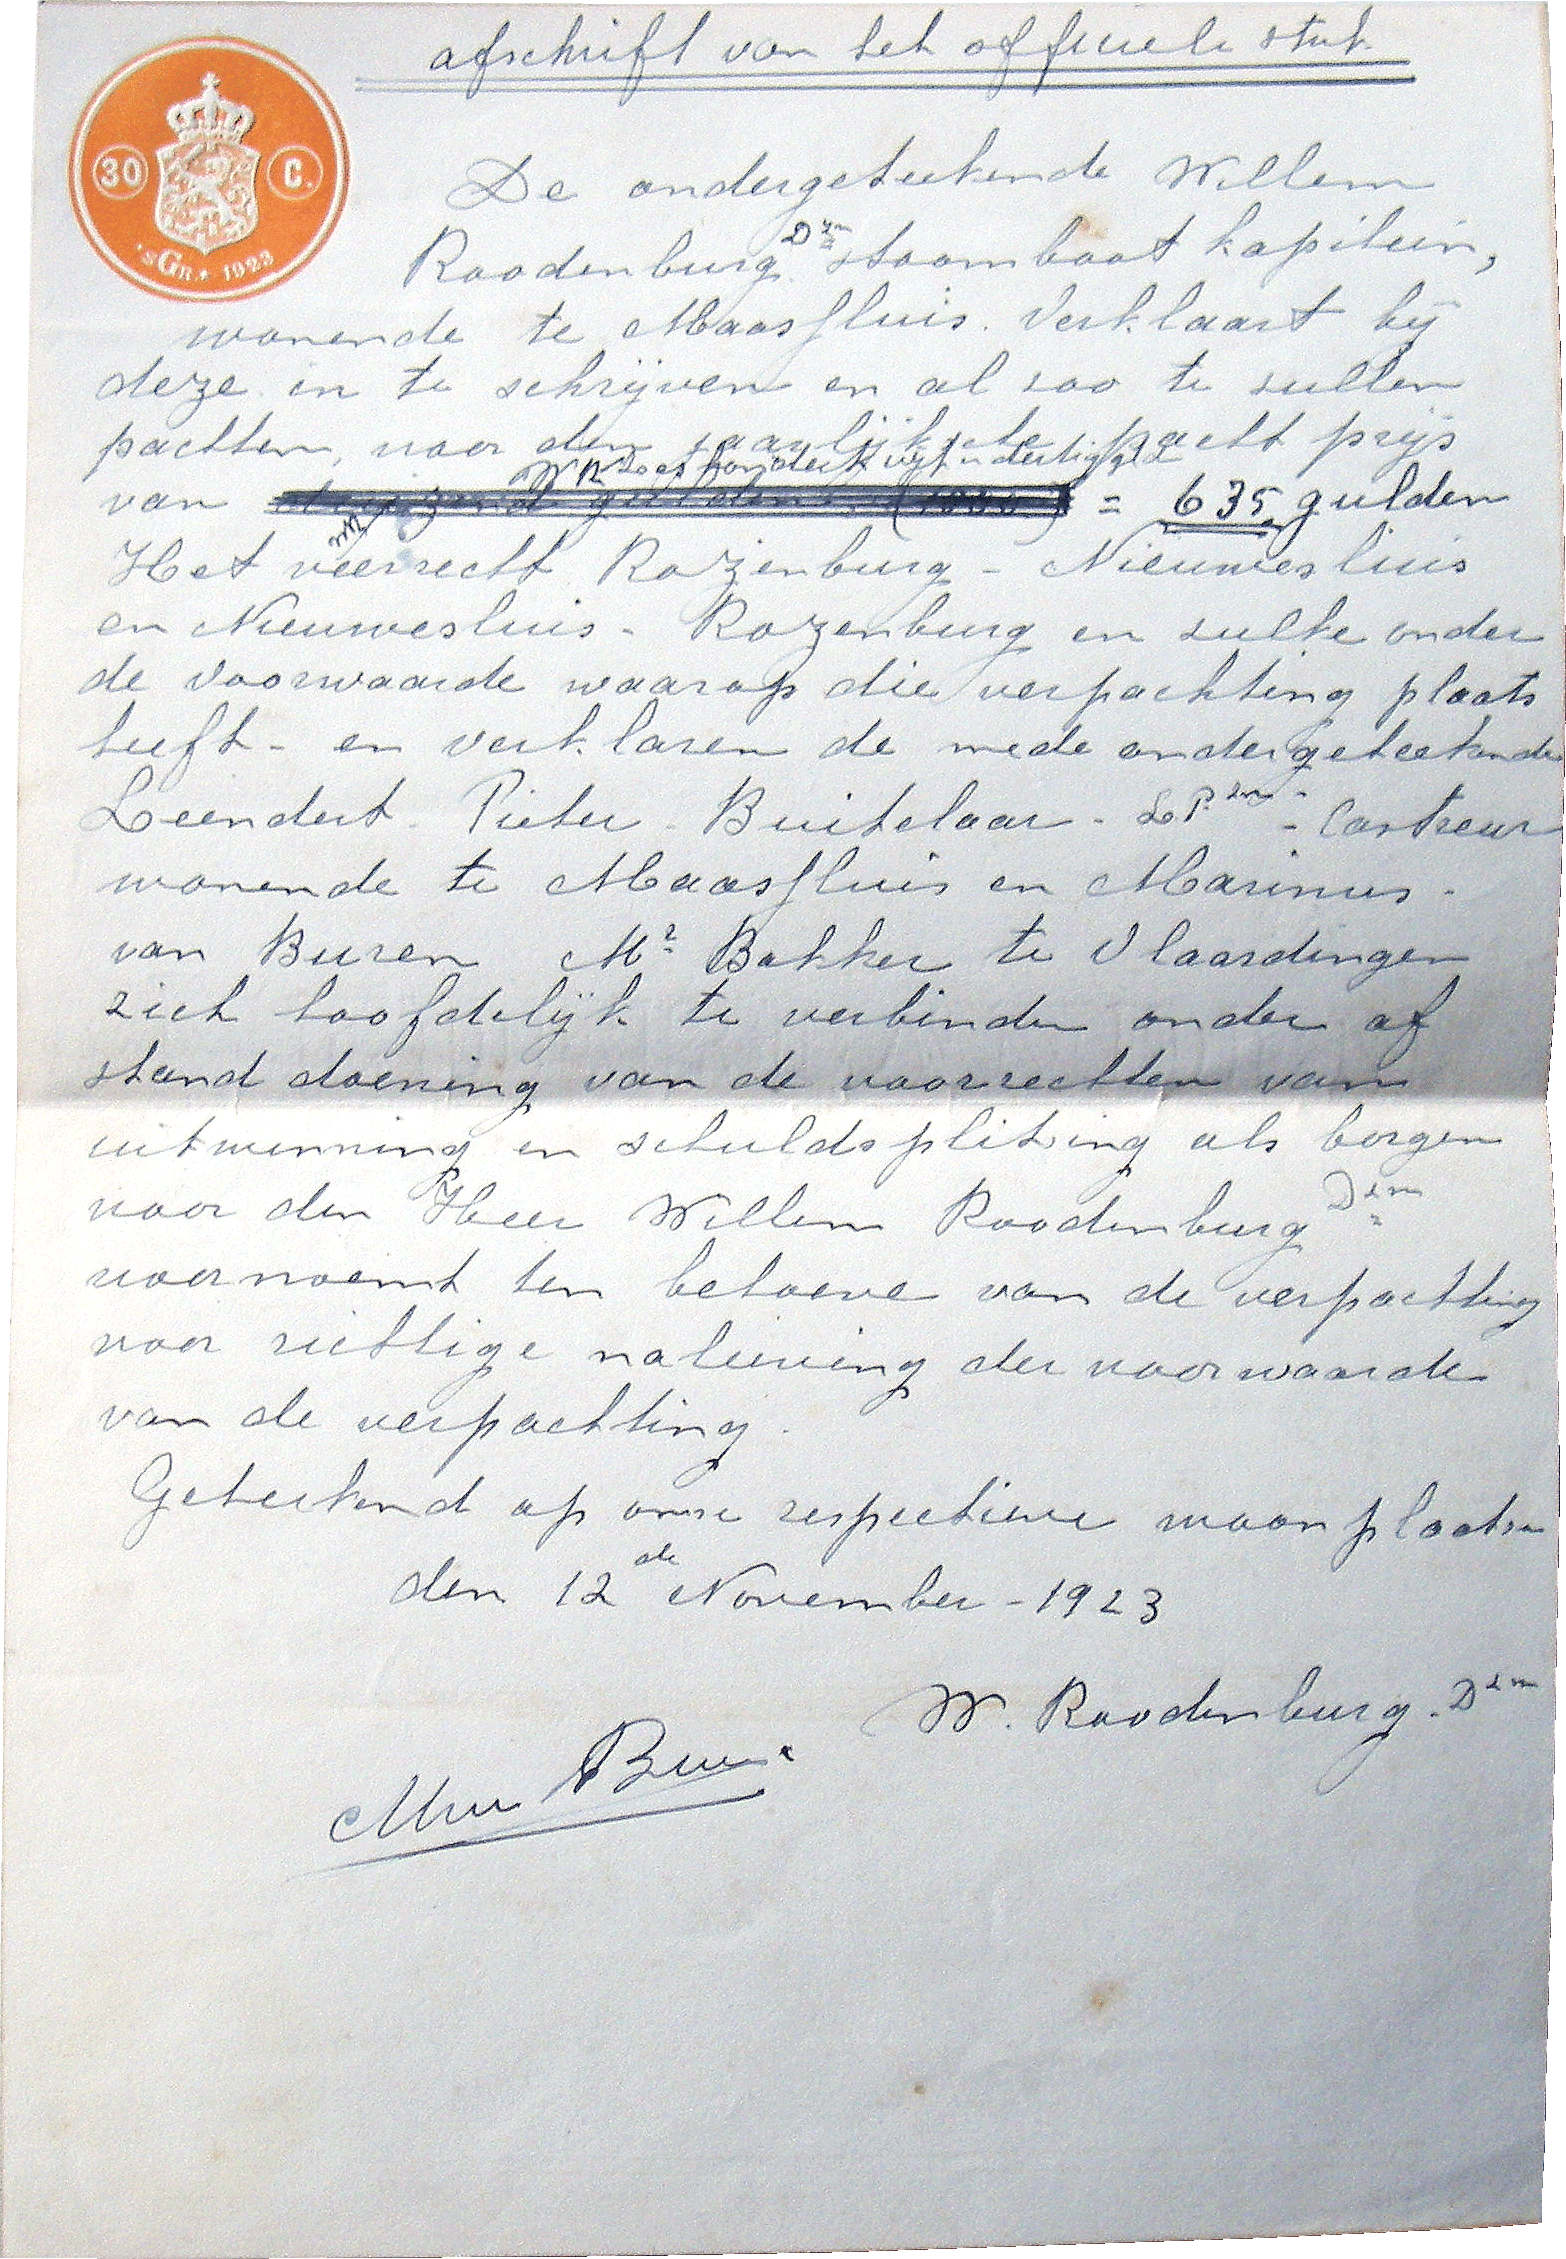 afschrift van het officieele stuk
30 C.
'sGR. 1923
De ondergeteekende Willem
Roodenburg Dzn stoomboot kapitein,
wonende te Maassluis. Verklaart bij
deze in te schrijven en al zoo te zullen
pachten, voor den jaarlijkschte pacht prijs
WR zes honderd vijf n dertig gld
van duizend gulden (1000) = 635, gulden
WR
Het veerrecht Rozenburg - Nieuwesluis
en Nieuwesluis - Rozenburg en sulke onder
de voorwaarde waarop die verpachting plaats
heeft - en verklaren de mede ondergeteekende
Leendert Pieter Buitelaar - LPzn - Carteur
wonende te Maassluis en Marinus -
van Buren Mr Bakker te Vlaardingen
zich hoofdelijk te verbinden onder af
stand doening van de voorrechten van
uitwinning en schuldsplitsing als borgen
voor den Heer Willem Roodenburg Dzn
voornoemt ten behoeve van de verpachting
voor richtige naleving der voorwaarde
van de verpachting.
Geteekend op onze respectieve woonplaatsen
den 12de November - 1923
W. Roodenburg. Dzn